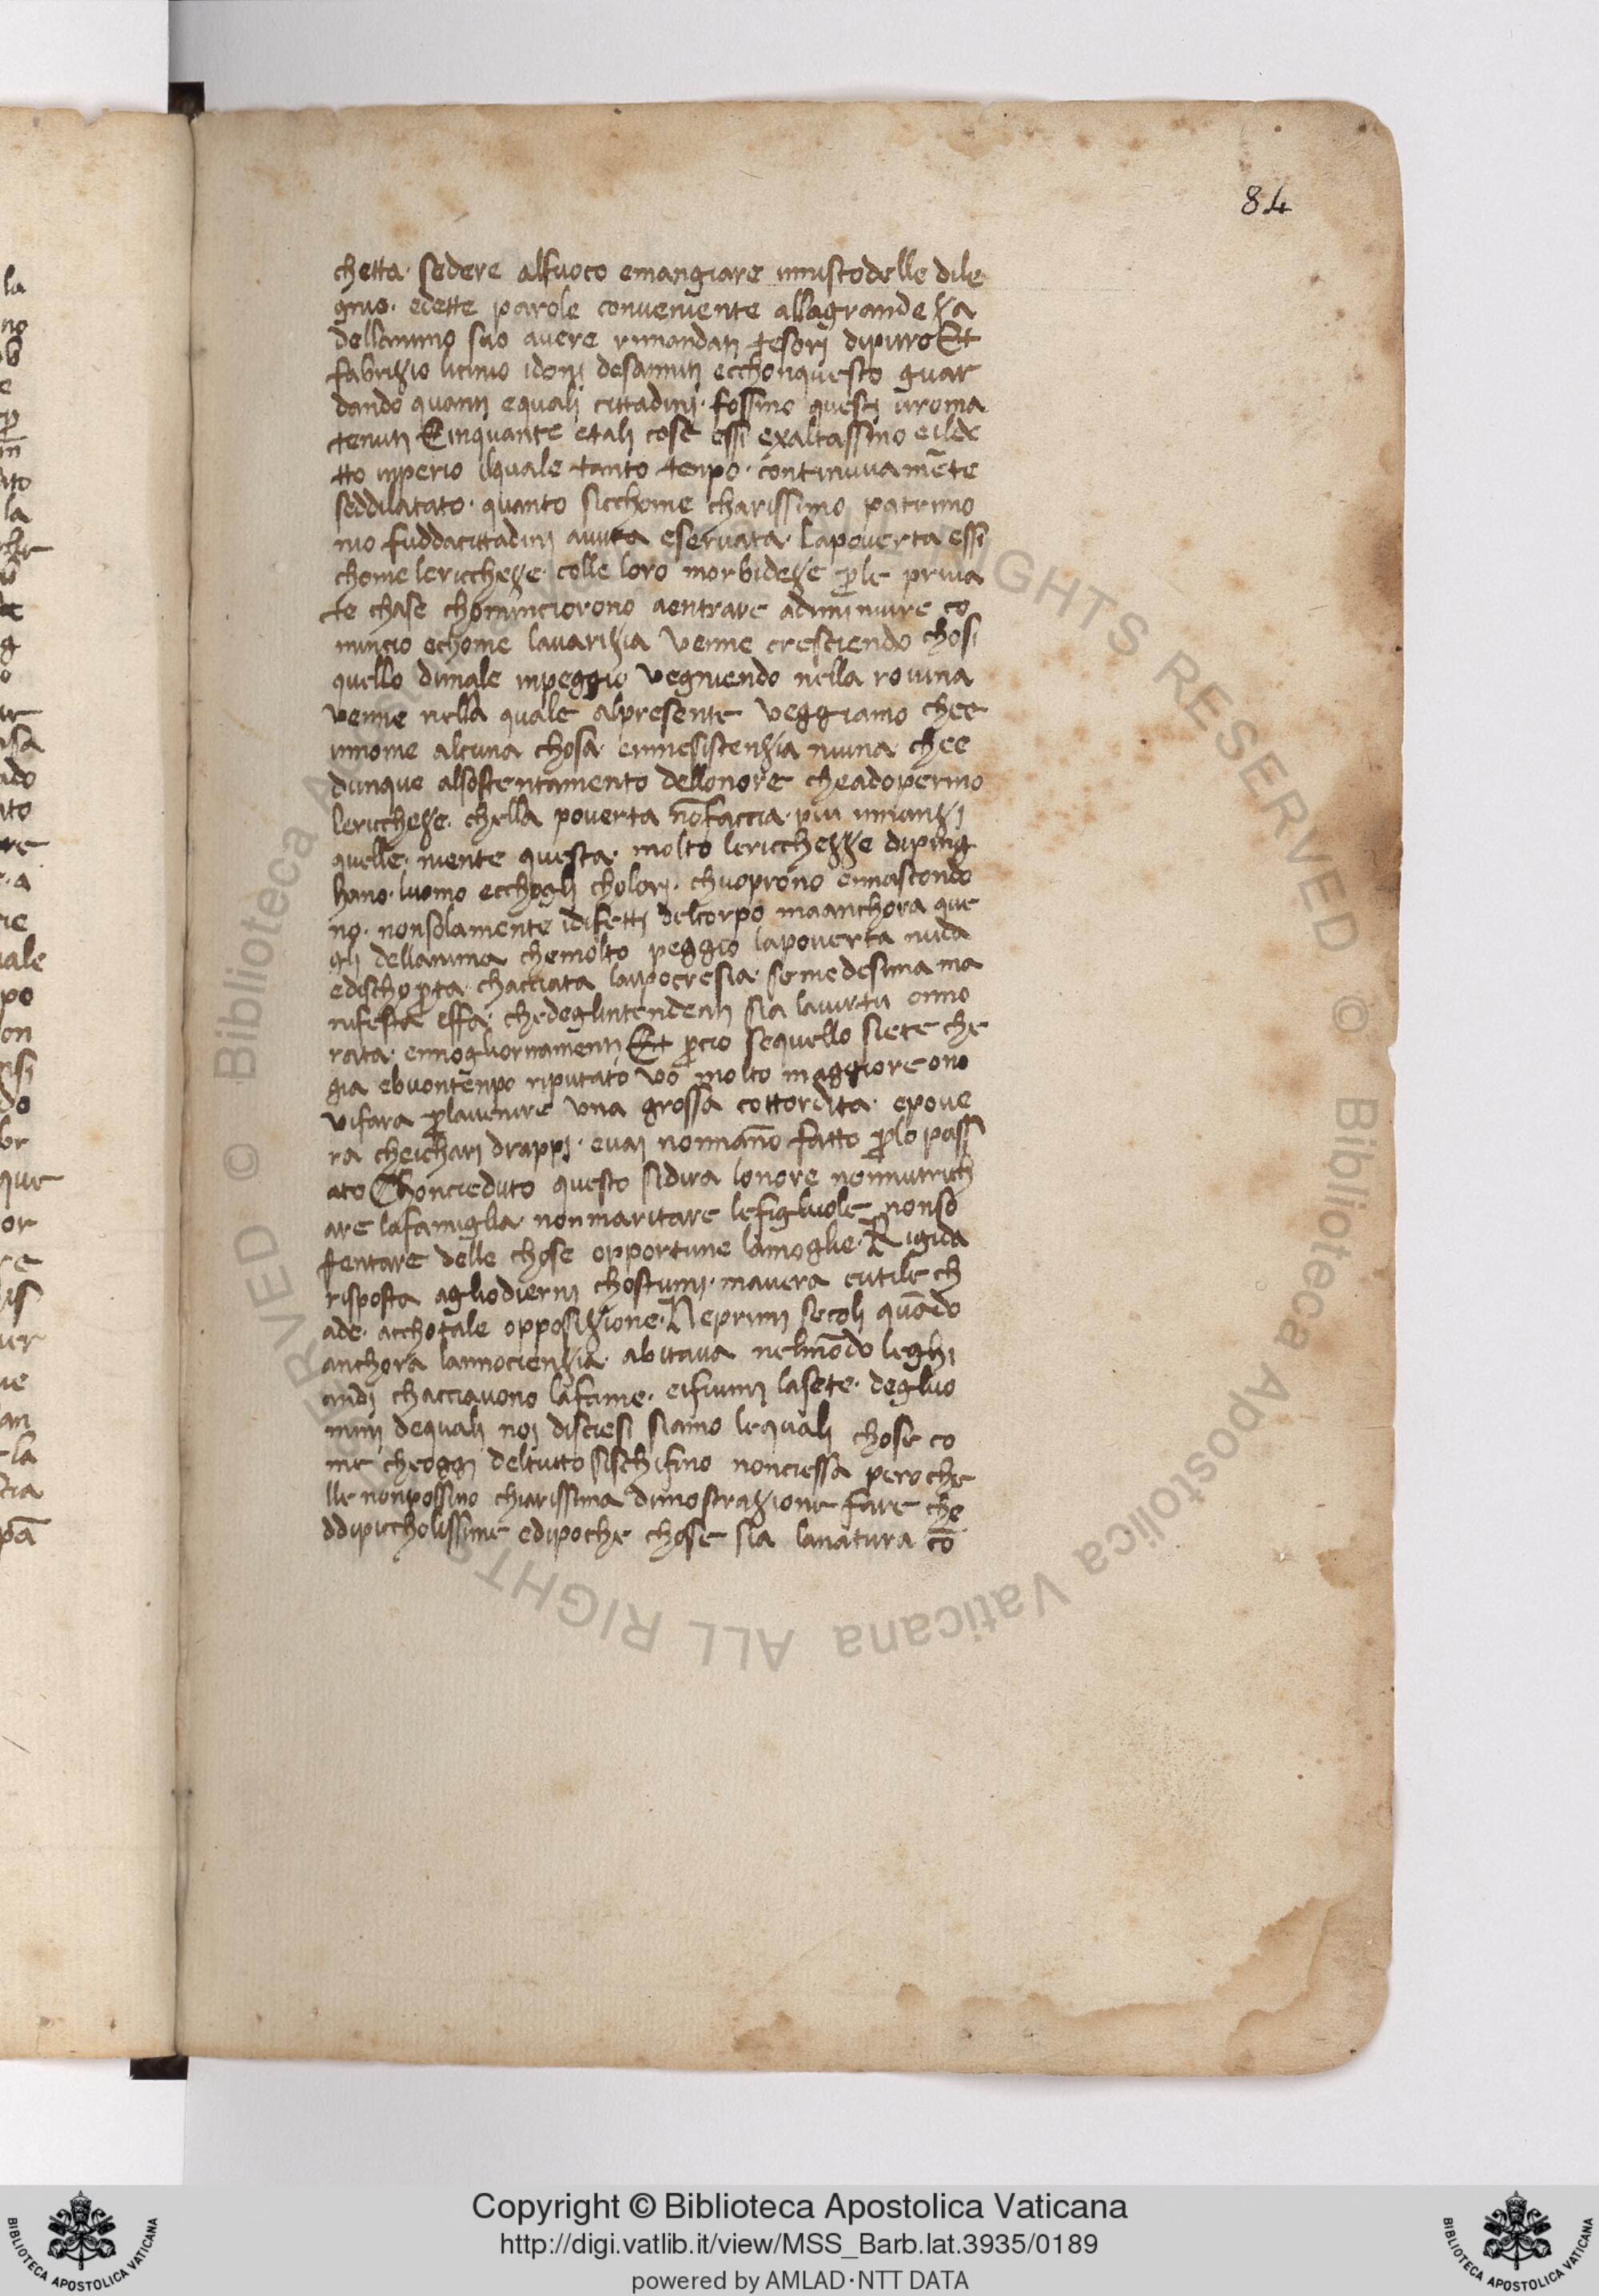 84
chetta· sedere alfuoco emangiare iniscodelle dile
gnio· edette parole conveniente allagrandeza
dellanimo suo avere rimandati tesori dipirro Et
fabrizio licinio idoni desanniti ecchonquesto guar
dando quanti equali cittadini· fossino questi inroma
tenuti E inquante etali cose essi exaltassino eilde
tto inperio ilquale tanto tenpo· continuuamēte
seddilatato· quanto sicchome charissimo patrimo
nio fuddacittadini avuta eservata· Lapoverta essi
chome lericcheze colle loro morbideze ꝑle priva
te chase chominciorono aentrare adiminuire co
mincio echome lavarizia venne cresciendo chosi
quello dimale inpeggio vegniendo nella rovina
venne nella quale alpresente veggiamo chee
innome alcuna chosa· einnesistenzia niuna· chee
dunque alsostentamento dellonore cheadoperino
lericcheze· chella poverta nōfaccia· piu innanzi
quelle· niente questa· molto lericchezze diping
hano· luomo ecchogli cholori· chuoprono ennascondo
no· nonsolamente idifetti delcorpo maanchora que
gli dellanima chemolto peggio lapoverta nuda
edischoꝑta· chacciata laipocresia· semedesima ma
nifesta effa· chedeglintendenti sia lavirtu onno
rata· ennogliornamenti Et ꝑcio sequello siete che
gia ebuontēnpo riputato vo molto maggiore ono
vifara ꝑlavenire una grossa cottordita· epove
ra cheichari drappi· evai nonnāno fatto ꝑlo pass
ato Choncieduto questo sidira lonore nonnutrich
are lafamiglia· nonmaritare lefigliuole nonso
stentare delle chose opportune lamoglie· Rigida
risposta agliodierni chostumi· mavera eutile ch
ade· acchotale opposizione· Neprimi secoli quādo
anchora lannocienzia· abitava nelmōdo leghi
andi chacciavono lafame· eifiumi lasete· degliuo
mini dequali noi disciesi siamo lequali chose co
me cheoggi deltutto sischifino nonciessa pero che
lle nonpossino chiarissima dimostrazione fare che
ddipiccholissime edipoche chose sia lanatura cō
Copyright © Biblioteca Apostolica Vaticana
http://digi.vatlib.it/view/MSS_Barb.lat.3935/0189
powered by AMLAD·NTT DATA